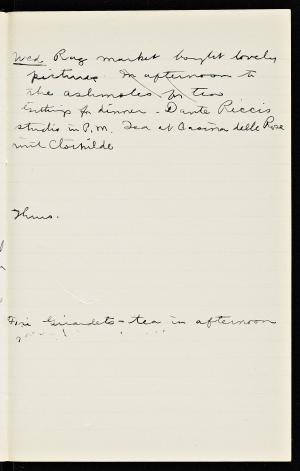 Wed. Rag market bought lovely
pictures. In afternoon to
the Ashmoles for tea
for dinner - Dante Riccis
studio in P.M. Tea at Casina delle Rose
with Clothilde
Thurs.
Fri Girardets - tea in afternoon